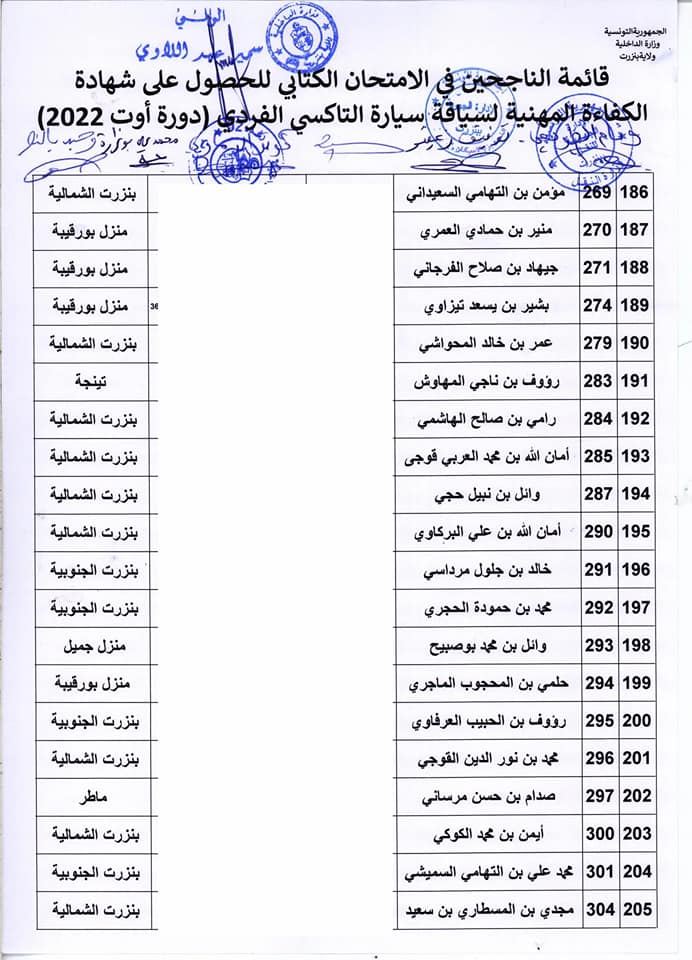 الجمهورية التونسية
وزارة الداخلية
ولاية بنزرت
الوالي
سمير عبد اللاوي
قائمة الناجحين في الامتحان الكتابي للحصول على شهادة
الكفاءة المهنية لسياقة سيارة التاكسي الفردي (دورة أوت 2022)
186 269 مؤمن بن التهامي السعيداني بنزرت الشمالية
187 270 منير بن حمادي العمري منزل بورقيبة
188 271 جيهاد بن صلاح الفرجاني منزل بورقيبة
189 274 بشير بن يسعد تيزاوي 36 منزل بورقيبة
190 279 عمر بن خالد المحواشي بنزرت الشمالية
191 283 رؤوف بن ناجي المهاوش تينجة
192 284 رامي بن صالح الهاشمي بنزرت الشمالية
193 285 أمان الله بن محمد العربي قوجى بنزرت الشمالية
194 287 وائل بن نبيل حجي بنزرت الشمالية
195 290 أمان الله بن علي البركاوي بنزرت الشمالية
196 291 خالد بن جلول مرداسي بنزرت الجنوبية
197 292 محمد بن حمودة الحجري بنزرت الجنوبية
198 293 وائل بن محمد بوصبيح منزل جميل
199 294 حلمي بن المحجوب الماجري منزل بورقيبة
200 295 رؤوف بن الحبيب العرفاوي بنزرت الجنوبية
201 296 محمد بن نور الدين القوجي بنزرت الشمالية
202 297 صدام بن حسن مرساني ماطر
203 300 أيمن بن محمد الكوكي بنزرت الشمالية
204 301 محمد علي بن التهامي السميشي بنزرت الجنوبية
205 304 مجدي بن المسطاري بن سعيد بنزرت الشمالية